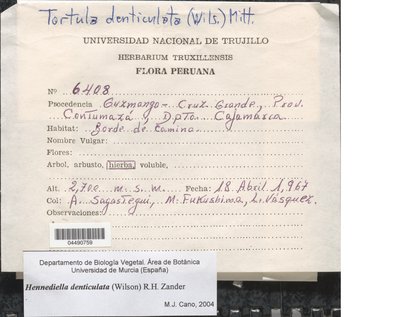 Tortula denticulata (Wils.) Mitt.
UNIVERSIDAD NACIONAL DE TRUJILLO
HERBARIUM TRUXILLENSIS
FLORA PERUANA
Nº 6408
Procedencia Guzmango - Cruz Grande, Prov.
Contumazá y Dpto. Cajamarca
Habitat: Borde de Camino.
Nombre Vulgar:
Flores:
Arbol, arbusto, hierba, voluble,
Alt. 2,700 m. s. m. Fecha: 18 Abril 1,967
Col: A. Sagástegui, M. Fukushima, L. Vásquez.
Observaciones:
04490759
Departamento de Biología Vegetal. Área de Botánica
Universidad de Murcia (España)
Hennediella denticulata (Wilson) R.H. Zander
M.J. Cano, 2004